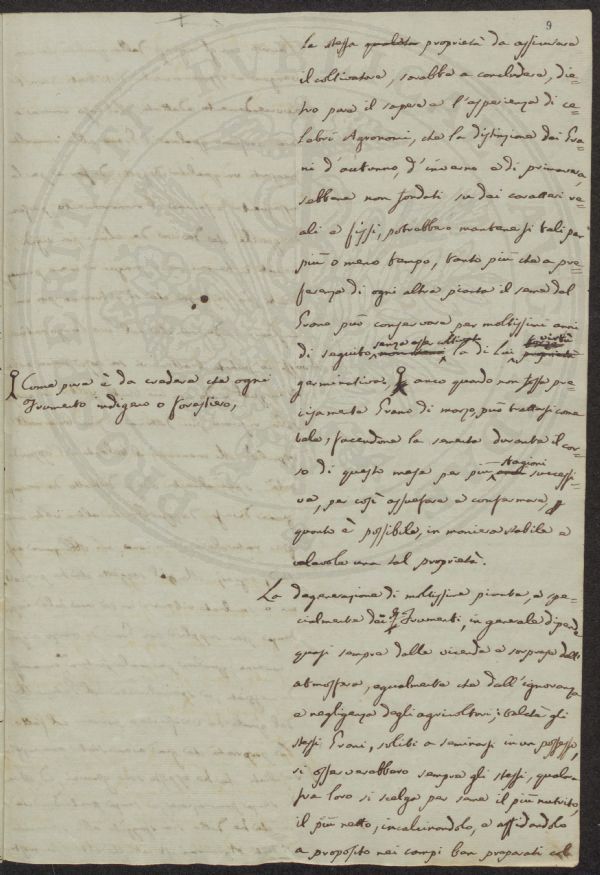 9
la stessa qualità proprietà da assicurare
il coltivatore, sarebbe a concludere, die=
tro pure il sapere e l'esperienza di ce=
lebri Agronomi, che la distinzione dei Gra=
ni d'autunno, d'inverno e di primavera,
sebbene non fondati su dei caratteri re=
ali e fissi, potrebbero mantenersi tali per
più o meno tempo, tanto più che a pre=
ferenza di ogni altra pianta il seme del
Grano può conservare per moltissimi anni
di seguito senza esser coltivato la di Lui virtù proprietà
germinativa. anco quando non fosse pre=
cisamente Grano di marzo, può trattarsi come
tale, facendone la sementa durante il cor=
so di questo mese per più stagioni successi=
ve, per così assuefare a conservare,
quanto è possibile, in maniera stabile e
valevole una tal proprietà.
Come pure è da credere che ogni
Frumento indigeno o forestiero,
La degenerazione di moltissime piante, e spe=
cialmente dei Frumenti, in generale dipende
quasi sempre dalle vicende e sorprese dell'
atmosfera, egualmente che dall'ignoranza
e negligenza degli agricoltori; talchè gli
stessi Grani, soliti a seminarsi in un possesso,
si osserverebbero sempre gli stessi, qualora
fra loro si scelga per seme il più nutrito,
il più netto, incalcinandolo, e affidandolo
a proposito nei campi ben preparati col